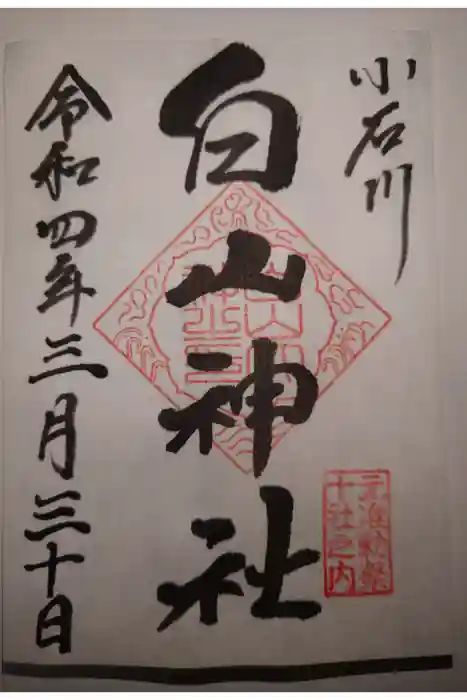 小石川
白山神社
令和四年三月三十日
元准勅祭
十社之内